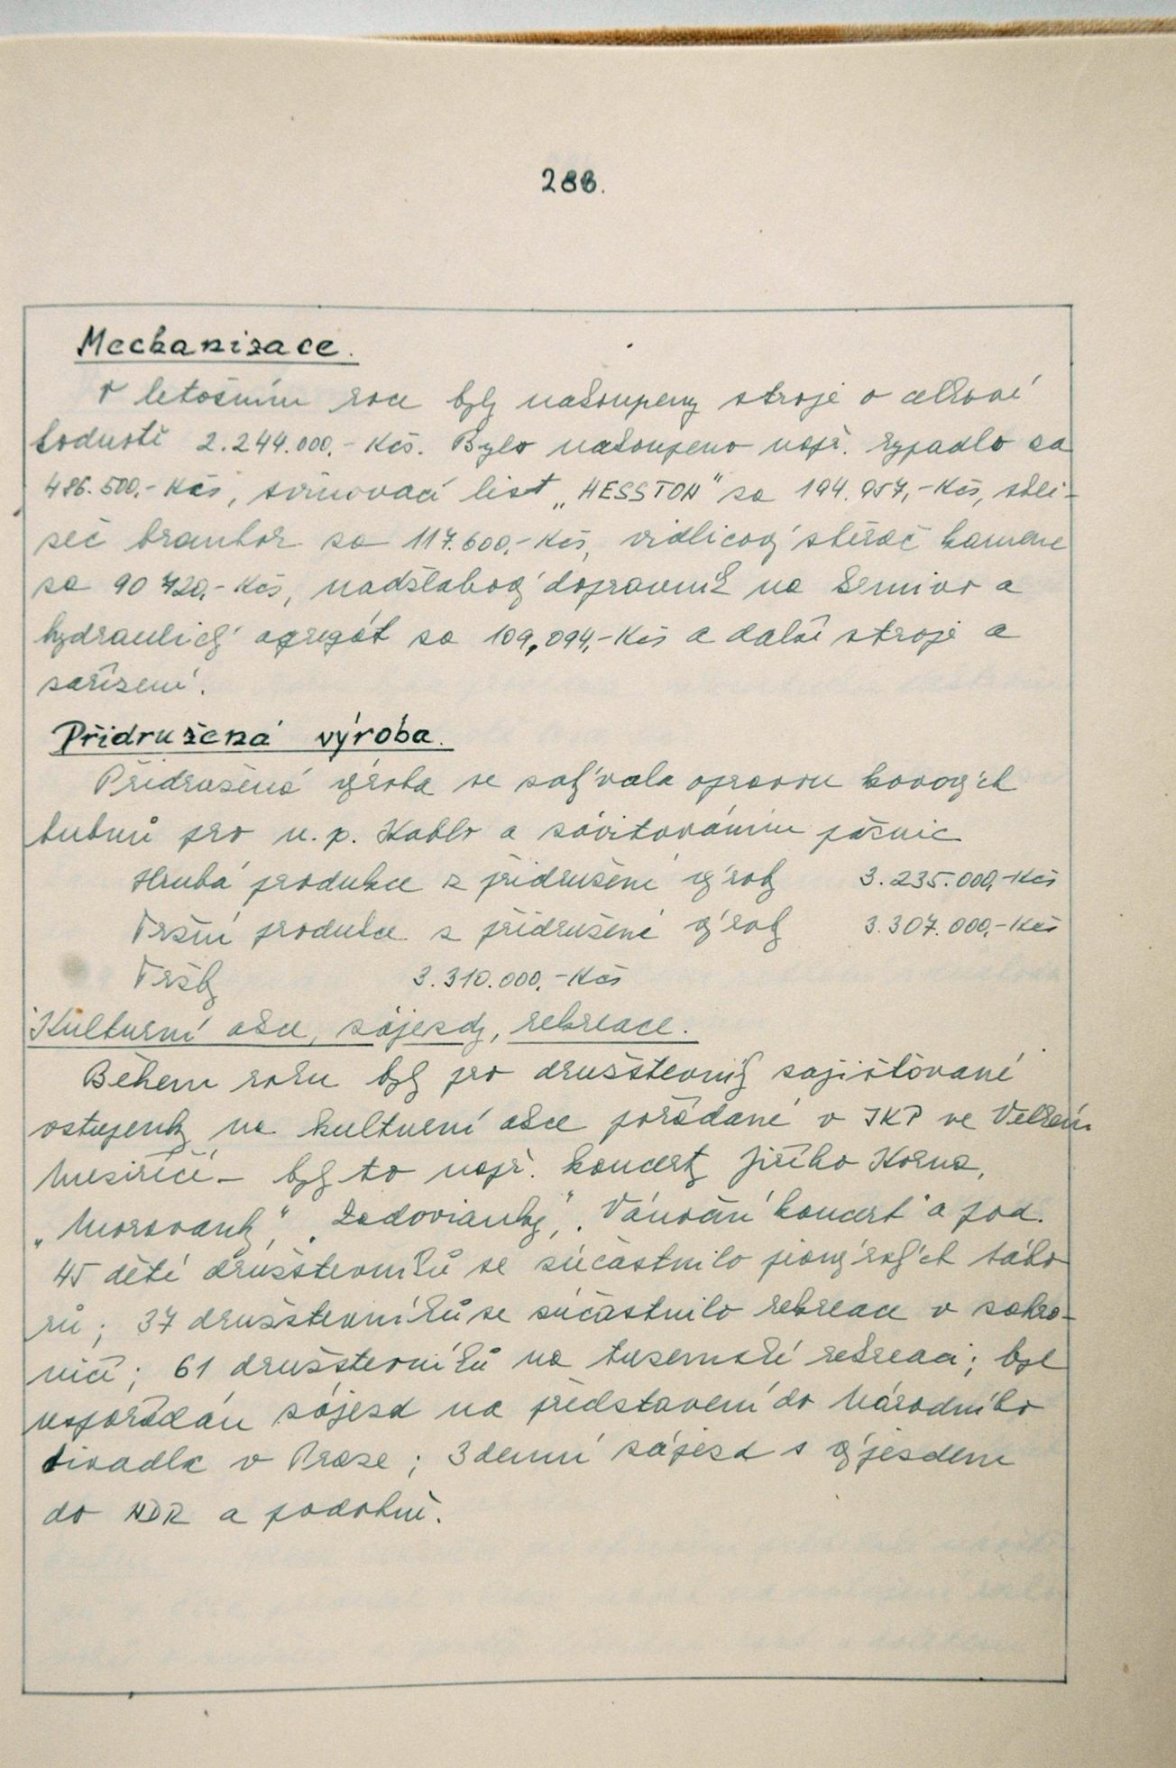 288.
Mechanizace.
V letošním roce byly nakoupeny stroje o celkové
hodnotě 2.244.000,- Kčs. Bylo nakoupeno např. rypadlo za
486.500,- Kčs, svinovací list „HESSTON" za 194.957,- Kčs, skli-
zeč brambor za 117.600,- Kčs, vidlicový sběrač kamene
za 90 720,- Kčs, nadžlabový dopravník na krmivo a
hydraulický agregát za 109,094,- Kčs a další stroje a
zařízení.
Přidružená výroba.
Přidružená výroba se zabývala opravou kovových
bubnů pro n. p. Kablo a závitováním pážnic
Hrubá produkce z přidružené výroby 3.235.000,- Kčs
Tržní produkce z přidružené výroby 3.307.000,- Kčs
Tržby 3.310.000,- Kčs
Kulturní akce, zájezdy, rekreace.
Během roku byly pro družstevníky zajišťované
vstupenky na kulturní akce pořádané v JKP ve Velkém
Meziříčí – byly to např. koncerty Jiřího Korna,
„Moravanky", „Žadovianky", „Vánoční koncert" a pod.
45 dětí družstevníků se zúčastnilo pionýrských tábo-
rů; 37 družstevníků se zúčastnilo rekreace v zahra-
ničí; 61 družstevníků na tuzemské rekreaci; byl
uspořádán zájezd na představení do Národního
divadla v Praze; 3denní zájezd s výjezdem
do NDR a podobně.